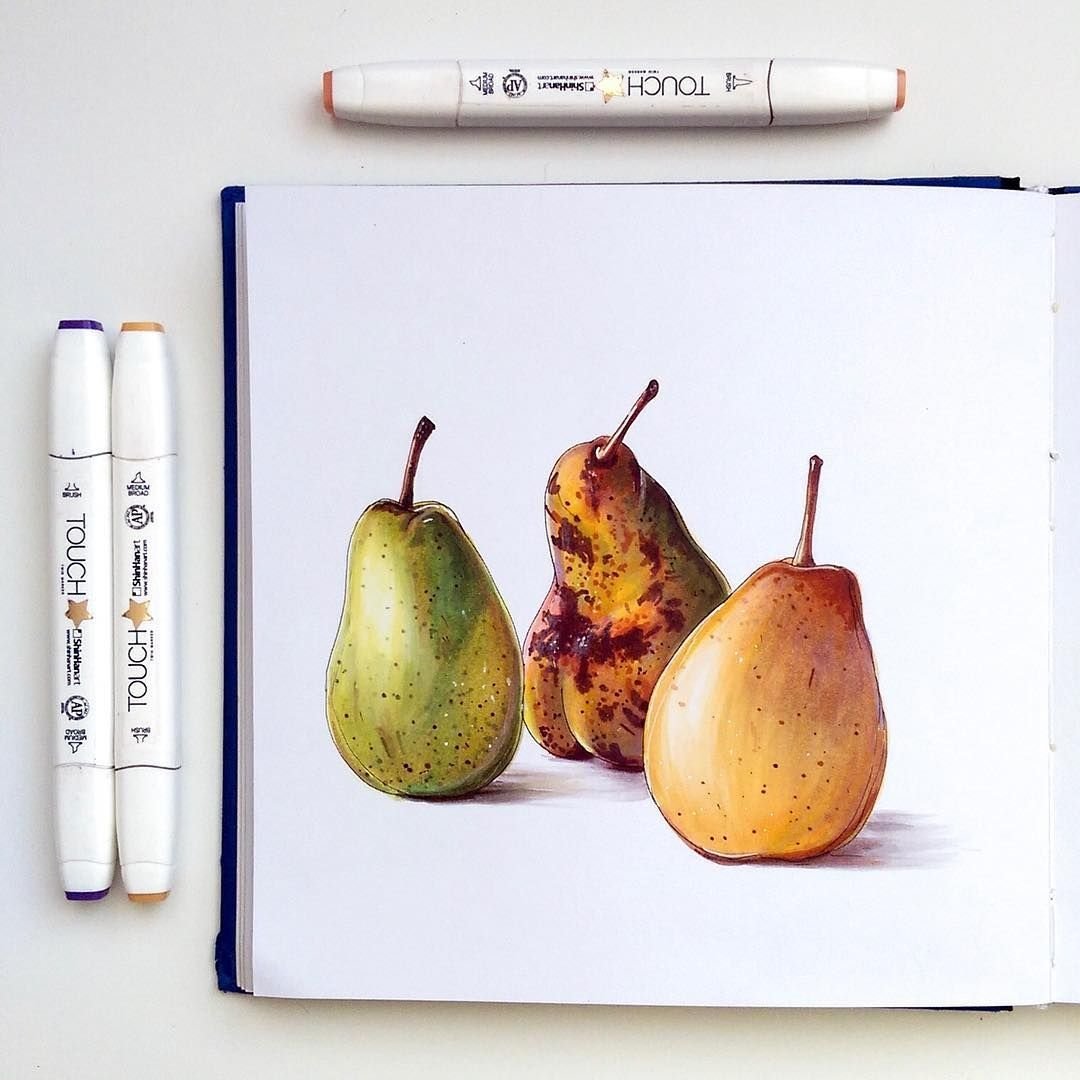 TOUCH
TWIN MARKER
BRUSH
ShinHanart
www.shinhanart.com
AP
MEDIUM
BROAD
BRUSH
TOUCH
TWIN MARKER
ShinHanart
www.shinhanart.com
AP
MEDIUM
BROAD
MEDIUM
BROAD
AP
ShinHanart
www.shinhanart.com
TOUCH
TWIN MARKER
BRUSH